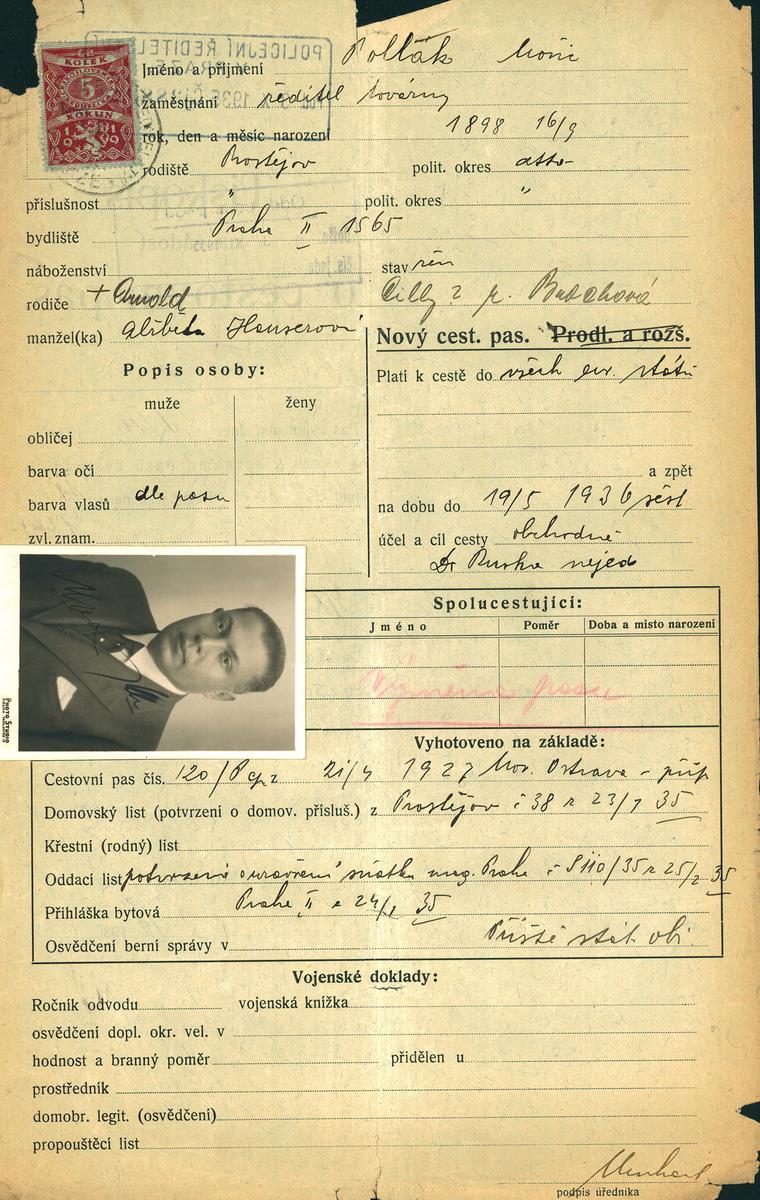 KOLEK
5
KORUN
1919
POLICEJNÍ ŘEDITELS
Jméno a přijmení Pollák Moric
zaměstnání ředitel továrny
rok, den a měsíc narození 1898 16/9
rodiště Prostějov polit. okres dtto
příslušnost " polit. okres "
bydliště Praha II 1565
náboženství stav žen
rodiče + Arnold Cilly r.
manžel(ka) Alžběta Hauserová
Nový cest. pas. Prodl. a rozš.
Popis osoby:
Platí k cestě do všech ev. států
muže ženy
obličej
barva očí
a zpět
barva vlasů dle pasu
na dobu do 19/5 1936
zvl. znam.
účel a cíl cesty obchodně
Dr nejed
Spolucestující:
Jméno Poměr Doba a místo narození
Výměna pasu
PHOTO STUDIO
Vyhotoveno na základě:
Cestovní pas čís. 120/ 21/4 1927 Mor. Ostrava
Domovský list (potvrzení o domov. přísluš.) z Prostějov č 38 z 23/1 35
Křestní (rodný) list
Oddací list potvrzení o uzavření sňatku mag. Praha č S110/35 z 25/2 35
Přihláška bytová Praha II z 24/1 35
Osvědčení berní správy v Příště stát. ob.
Vojenské doklady:
Ročník odvodu vojenská knížka
osvědčení dopl. okr. vel. v
hodnost a branný poměr přidělen u
prostředník
domobr. legit. (osvědčení)
propouštěcí list
podpis úředníka